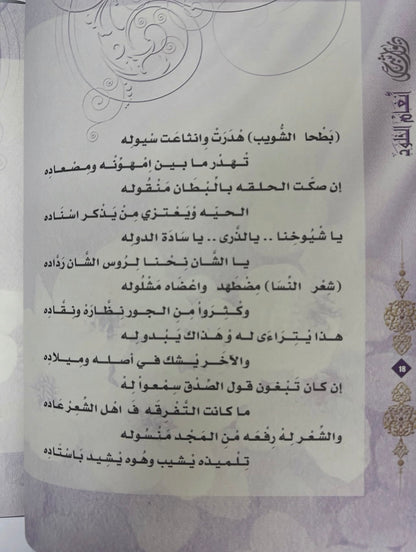 أنغام الخلود
(بَطْحا الشُّويب) هْدَرَتْ وانثاعَت سْيوله
تْهدْر ما بين امْهوّنه ومِصْعاده
إن صكّت الحلقه بالْبطان مَنْقُوله
الحيّه وْيَعْتزي مِنْ يَذْكر اسْناده
يا شْيُوخنا .. يالذَّرى .. يا سَادَة الدوله
يا الشّان نحْنا لرُوس الشّان رَدّاده
(شِعْر النّسا) مِضْطهد واعْضاه مَشْلُوله
وكْثرَوا مِن الجور نظّارهْ ونقّاده
هذا يْترَاءَى له وْ هَذاك يَبْدو له
والآخر يْشك في أصله وميلاده
إن كان تَبْغون قول الصّدْق سمْعوا لهْ
ما كانت التّفرقه ف اهْل الشّعرْ عَاده
والشّعْر لهْ رفْعه مْن المَجْد مَنْسُوله
تلْميذه يْشيب وهُوه يْشِيد بَاسْتاده
18